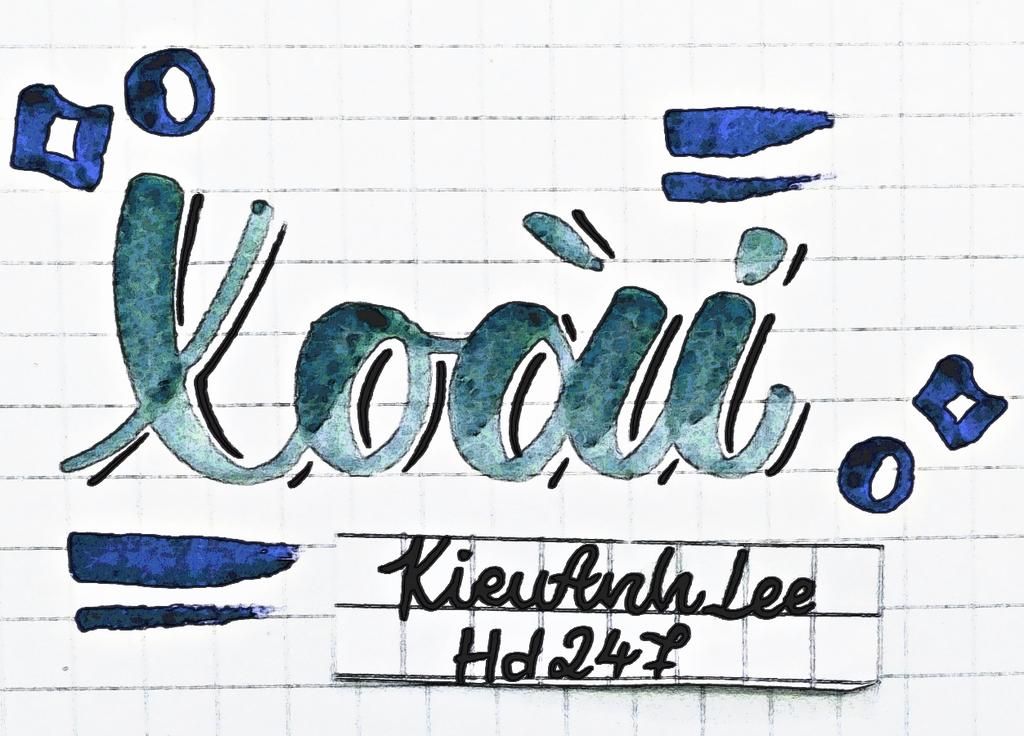 Xoài
KieuAnh Lee
Hd 247